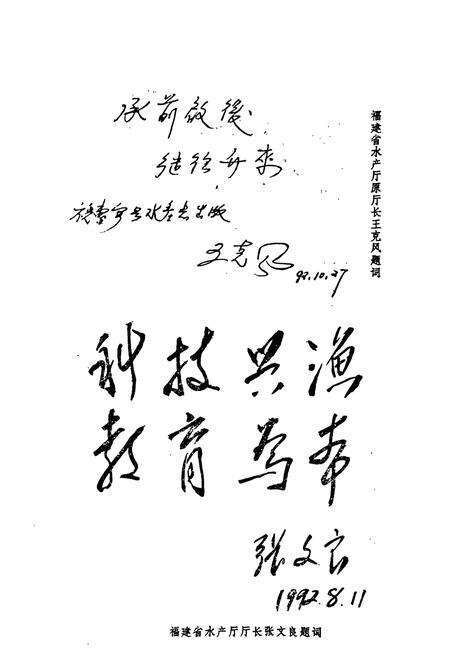 承前啟後
继往开來
水产志出版
王克风 92.10.27
福建省水产厅原厅长王克风题词
科技兴渔
教育為本
张文良
1992.8.11
福建省水产厅厅长张文良题词